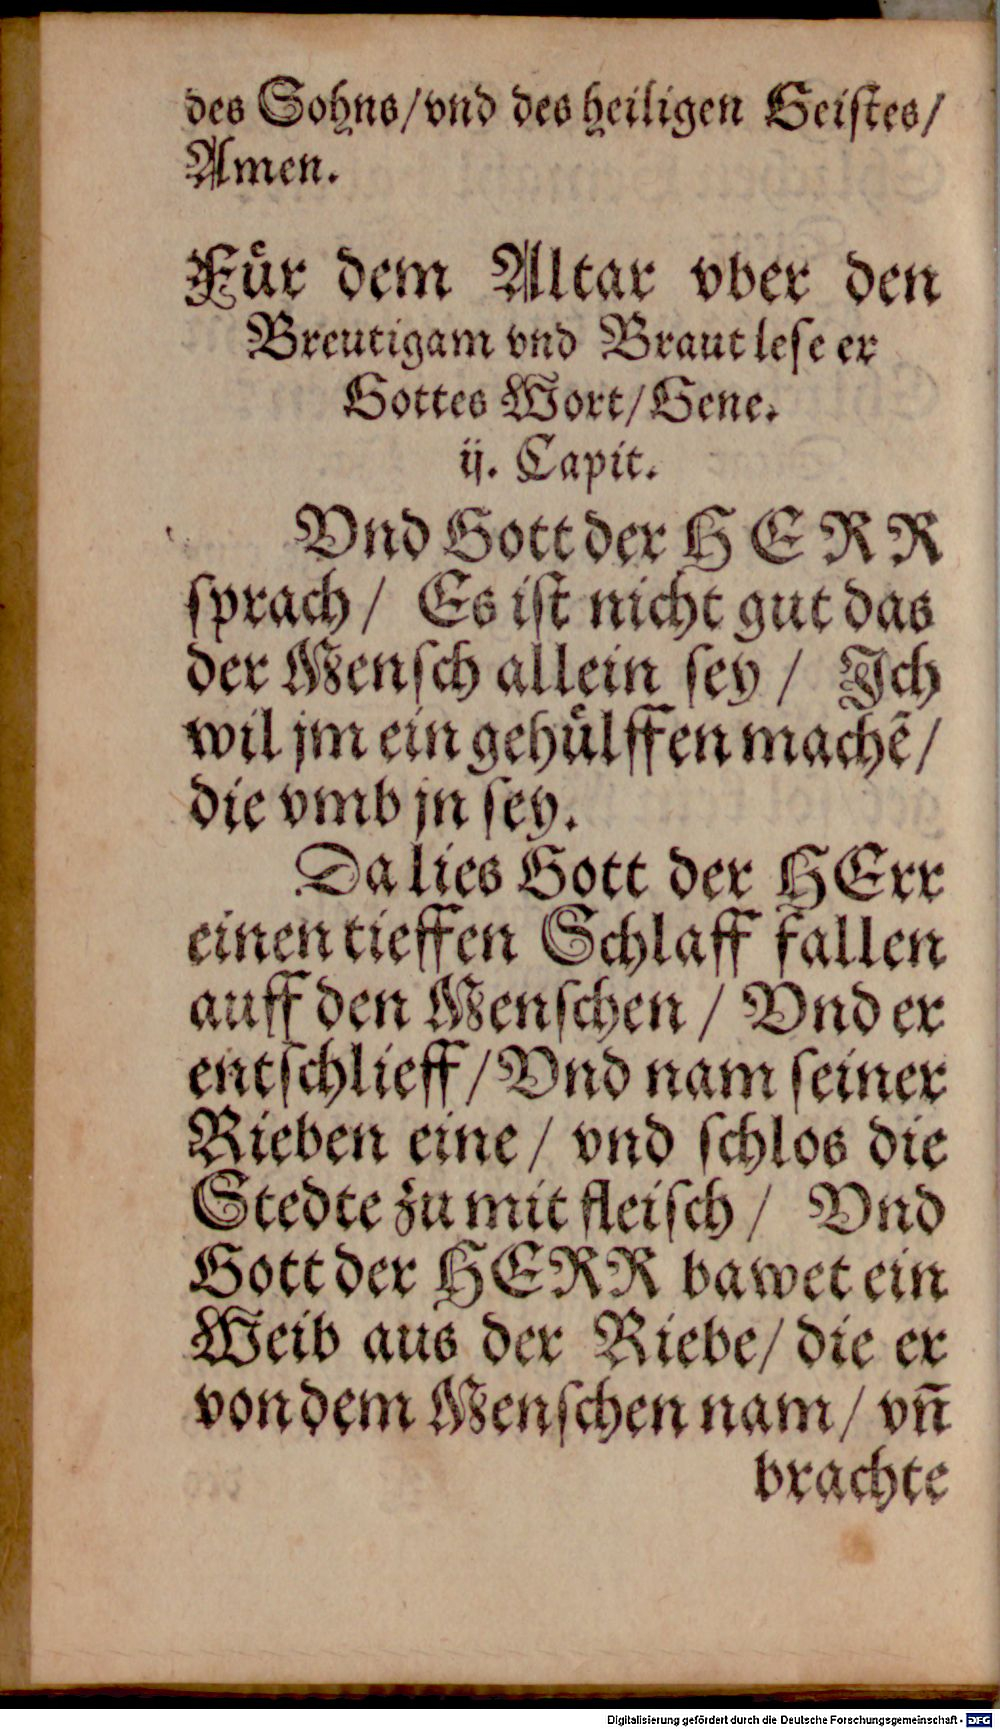 des Sohns/vnd des heiligen Geistes/
Amen.
Fuͤr dem Altar vber den
Breutigam vnd Braut lese er
Gottes Wort/Gene.
ij. Capit.
Vnd Gott der HERR
sprach/ Es ist nicht gut das
der Mensch allein sey/ Jch
wil jm ein gehuͤlffen machē/
die vmb jn sey.
Da lies Gott der HErr
einen tieffen Schlaff fallen
auff den Menschen/ Vnd er
entschlieff/Vnd nam seiner
Rieben eine/ vnd schlos die
Stedte zu mit fleisch/ Vnd
Gott der HERR bawet ein
Weib aus der Riebe/ die er
von dem Menschen nam/ vn̄
brachte
Digitalisierung gefördert durch die Deutsche Forschungsgemeinschaft - DFG